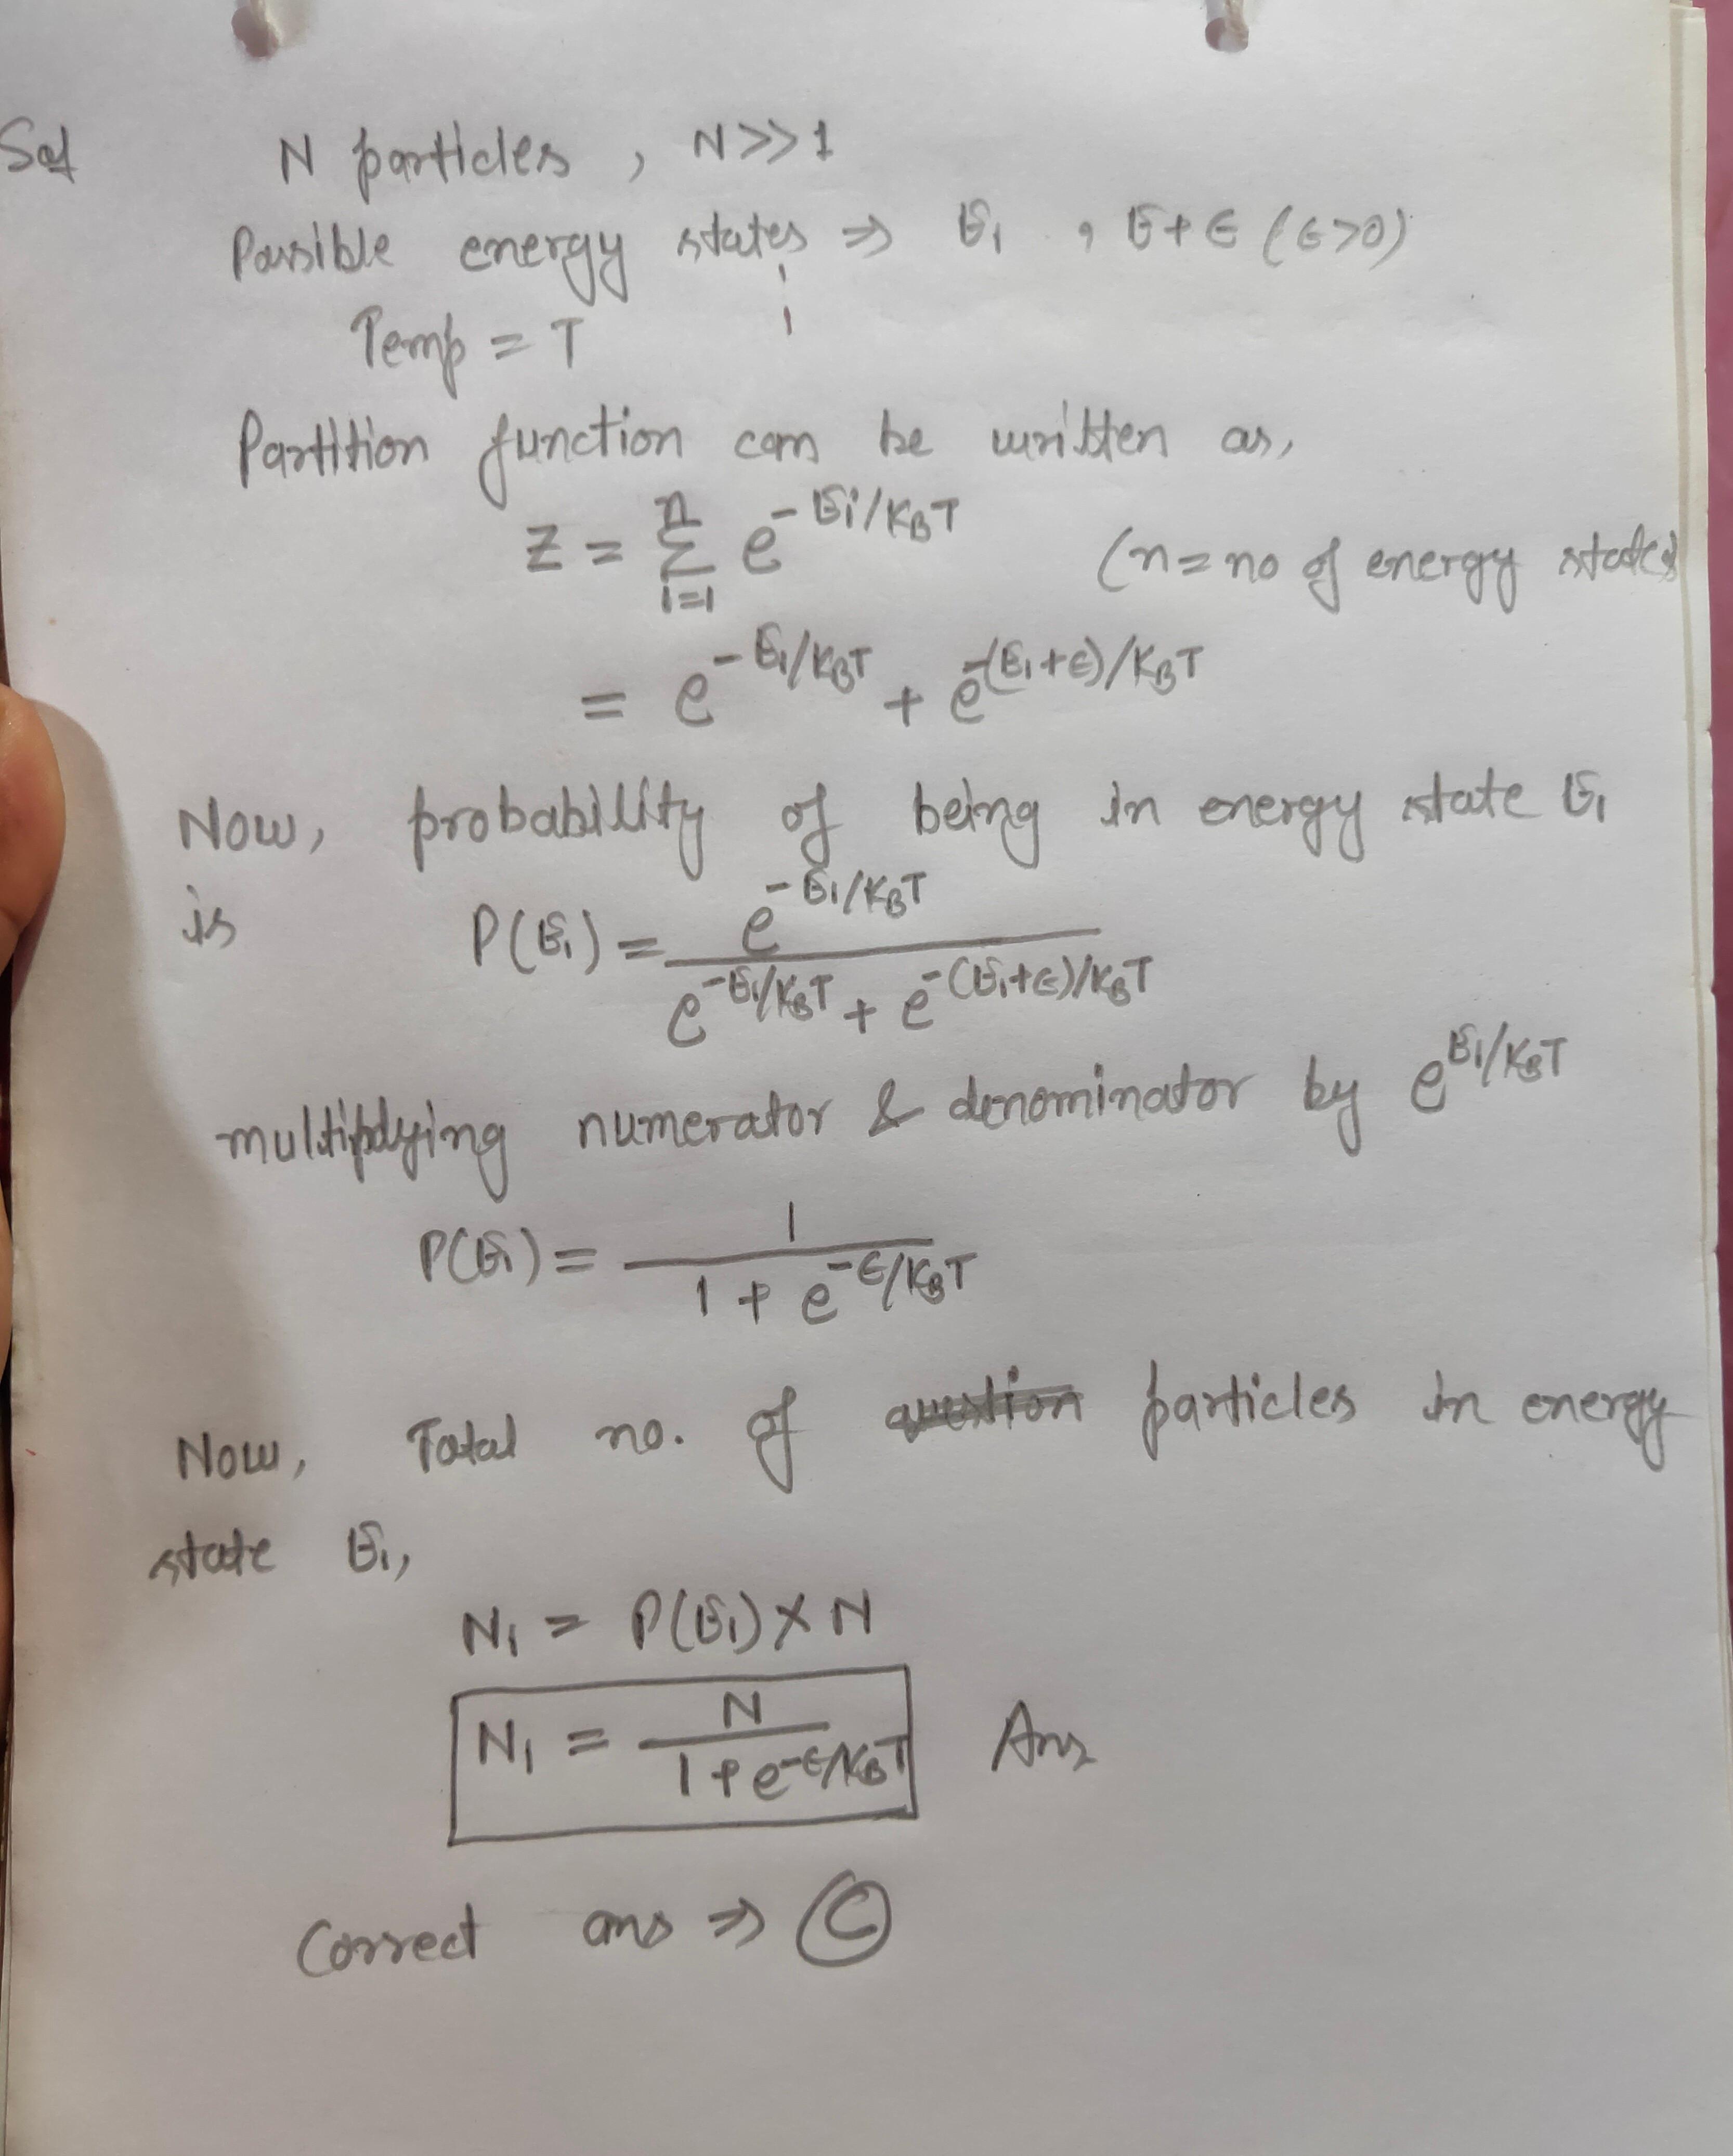 Sol N particles , N>>1
Possible energy states ⇒ E₁ , E+ϵ (ϵ>0)
Temp = T
Partition function can be written as,
Z = Σ_{i=1}^{n} e^{-Ei/K_BT} (n = no of energy states)
= e^{-E₁/K_BT} + e^{-(E₁+ϵ)/K_BT}
Now, probability of being in energy state E₁
is P(E₁) = e^{-E₁/K_BT} / (e^{-E₁/K_BT} + e^{-(E₁+ϵ)/K_BT})
multiplying numerator & denominator by e^{E₁/K_BT}
P(E₁) = 1 / (1 + e^{-ϵ/K_BT})
Now, Total no. of particles in energy
state E₁,
N₁ = P(E₁) × N
N₁ = N / (1 + e^{-ϵ/K_BT}) Ans
Correct ans ⇒ C